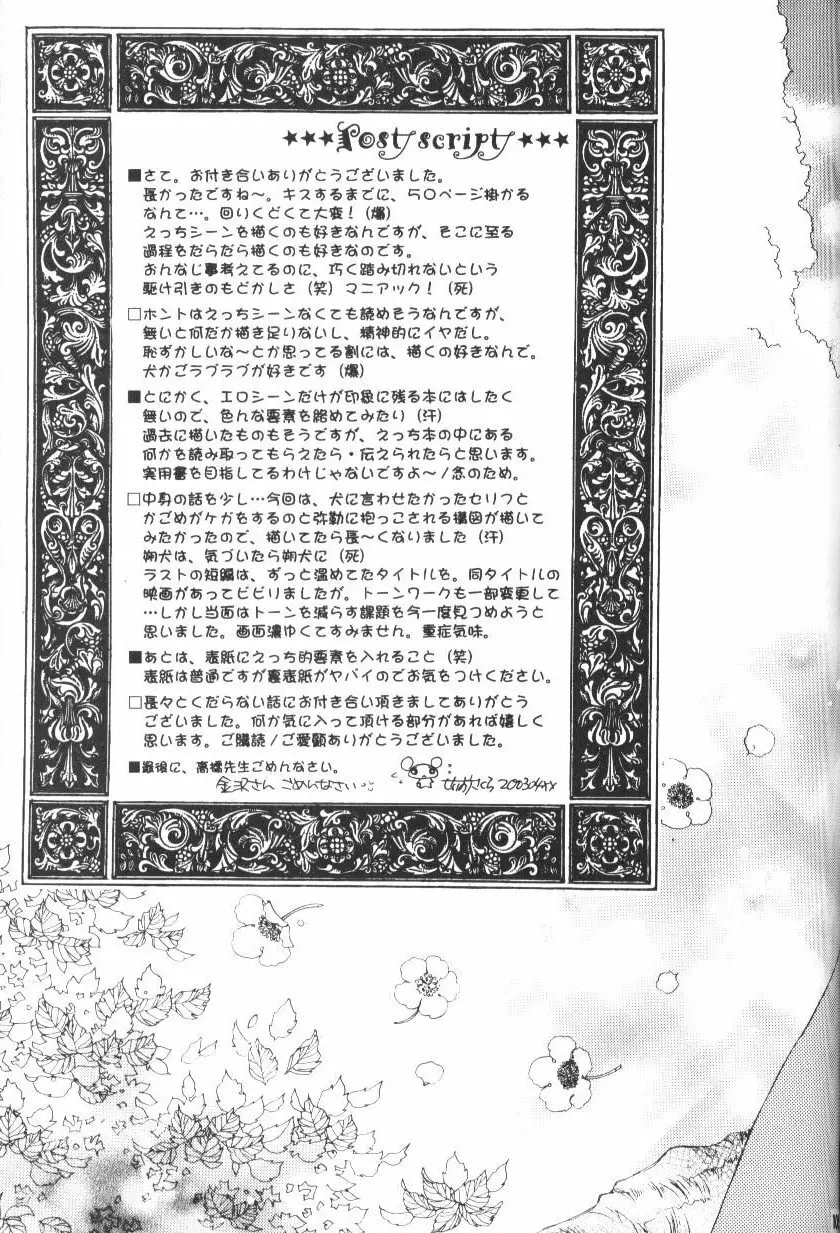 ★★★Post script★★★
■さて。お付き合いありがとうございました。
長かったですね～。キスするまでに、50ページ掛かる
なんて…。回りくどくて大変！（爆）
えっちシーンを描くのも好きなんですが、そこに至る
過程をだらだら描くのも好きなのです。
おんなじ事考えてるのに、巧く踏み切れないという
駆け引きのもどかしさ（笑）マニアック！（死）
□ホントはえっちシーンなくても読めそうなんですが、
無いと何だか描き足りないし、精神的にイヤだし。
恥ずかしいな～とか思ってる割には、描くの好きなんで。
犬かごラブラブが好きです（爆）
■とにかく、エロシーンだけが印象に残る本にはしたく
無いので、色んな要素を絡めてみたり（汗）
過去に描いたものもそうですが、えっち本の中にある
何かを読み取ってもらえたら・伝えられたらと思います。
実用書を目指してるわけじゃないですよ～/念のため。
□中身の話を少し…今回は、犬に言わせたかったセリフと
かごめがケガをするのと弥勒に抱っこされる構図が描いて
みたかったので、描いてたら長～くなりました（汗）
朔犬は、気づいたら朔犬に（死）
ラストの短編は、ずっと温めてたタイトルを。同タイトルの
映画があってビビりましたが。トーンワークも一部変更して
…しかし当面はトーンを減らす課題を今一度見つめようと
思いました。画面濃ゆくてすみません。重症気味。
■あとは、表紙にえっち的要素を入れること（笑）
表紙は普通ですが裏表紙がヤバイのでお気をつけください。
□長々とくだらない話にお付き合い頂きましてありがとう
ございました。何か気に入って頂ける部分があれば嬉しく
思います。ご購読/ご愛顧ありがとうございました。
■最後に、高橋先生ごめんなさい。
金沢さんごめんなさい